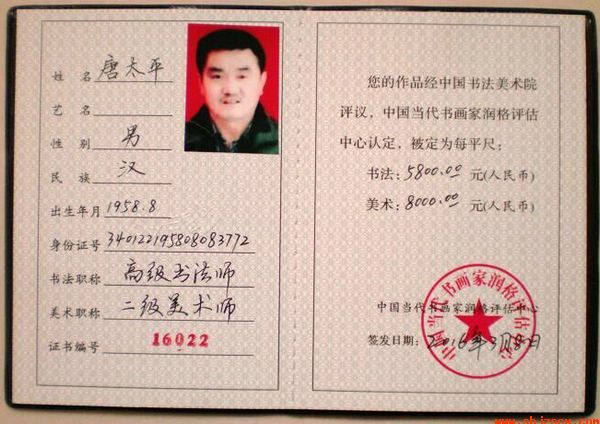 姓 名 唐太平
艺 名
性 别 男
民 族 汉
出生年月 1958.8
身份证号 340122195808083772
书法职称 高级书法师
美术职称 二级美术师
证书编号 16022
您的作品经中国书法美术院
评议，中国当代书画家润格评估
中心认定，被定为每平尺：
书法：5800.00 元(人民币)
美术：8000.00 元(人民币)
中国当代书画家润格评估中心
签发日期：2016年3月8日
中国当代书画家润格评估中心